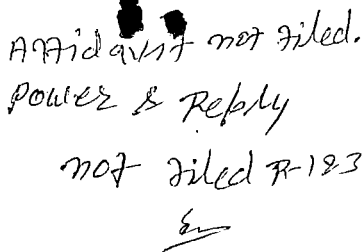 Affidavit not filed.
Power & Reply
not filed R-1&3